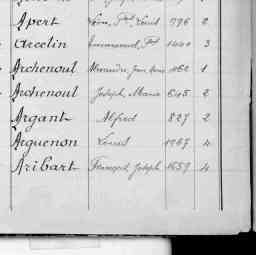 Apert Léon, Louis 796 2
Arcelin Emmanuel, 1440 3
Archenoul Alexandre, Jean 1
Archenoul Joseph, Marie 615 2
Argant Alfred 827 2
Arquenon Louis 1967 4
Aribart François Joseph 1659 4